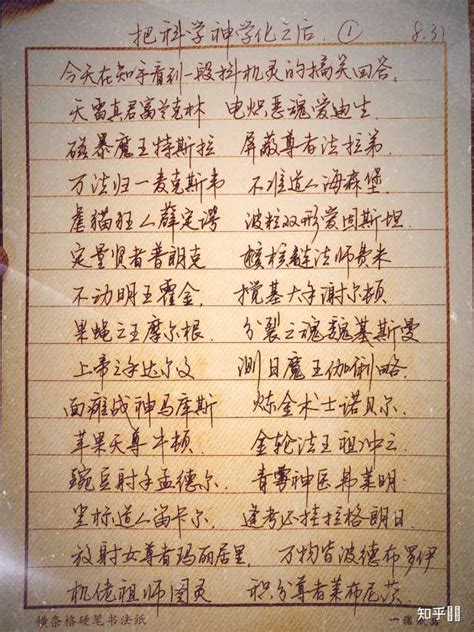 把科学神学化之后 ① 8.31
今天在知乎看到一段抖机灵的搞笑回答。
天雷真君富兰克林 电炽恶魂爱迪生
磁暴魔王特斯拉 屏蔽尊者法拉第
万法归一麦克斯韦 不准道人海森堡
虐猫狂人薛定谔 波粒双形爱因斯坦
定量贤者普朗克 核链法师费米
不动明王霍金 搅基大手谢尔顿
果蝇之王摩尔根 分裂之魂魏基斯曼
上帝之手达尔文 测日魔王伽利略
面瘫战神马库斯 炼金术士诺贝尔
苹果天尊牛顿 金轮法王祖冲之
豌豆射手孟德尔 青霉神医弗莱明
坐标道人笛卡尔 逢考必挂拉格朗日
放射女尊者玛丽居里 万物皆波德布罗伊
机佬祖师图灵 积分尊者莱布尼茨
横条格硬笔书法纸
知乎